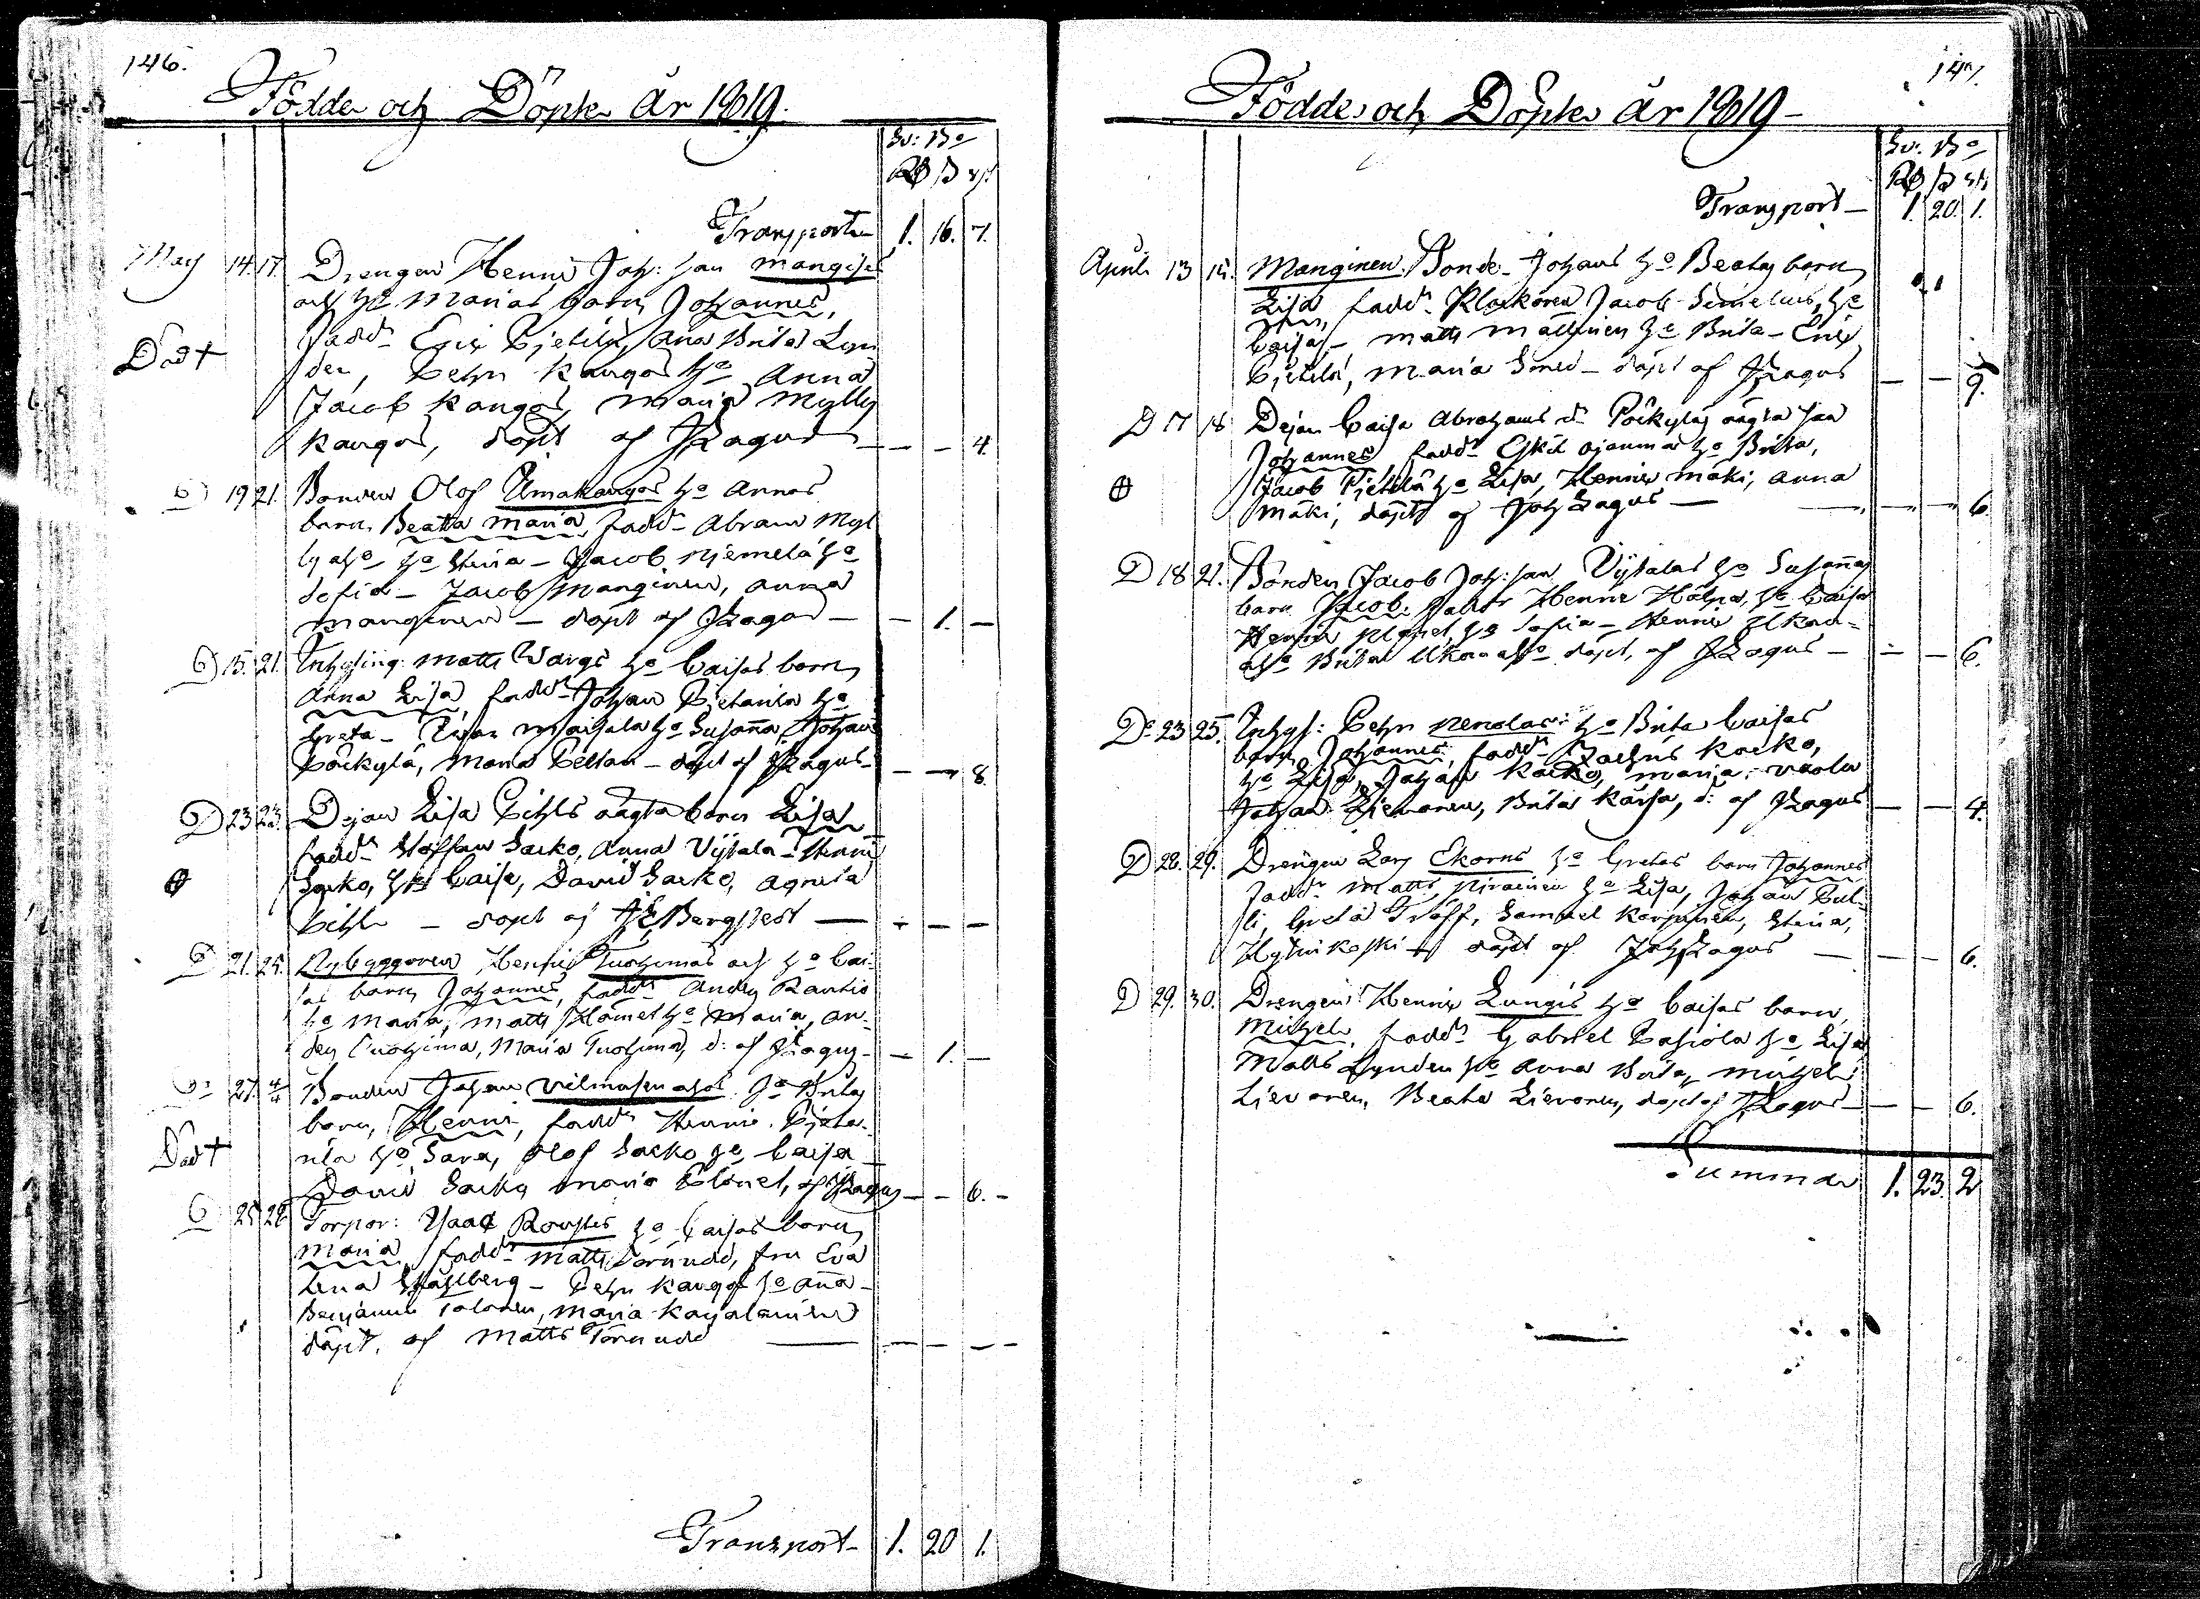 146.
Födde och Döpte År 1819.
Sv: B:o
Transport 1. 16. 7.
May 14. 17. Drengen Henric Joh: son Mangises
och h:o Marias barn Johannes,
fadd:r Eric Pjetilä, Ana Brita Lyn
Död † den, Pehr Kangas h:o Anna
Jacob Kangas, Maria Mylly
kangas, döpt af JZagus — — 4.
D 19 21. Bonden Olof Ulmakangas h:o Annas
barn, Beatta Maria, fadd:r Abram Myl
lyaho h:o Stina – Jacob Niemelä h:o
Sofia – Jacob Manginen, Anna
Manginen – döpt af JZagus – – 1. –
D 15. 21. Inhysing: Matts Wargs h:o Caisas barn
Anna Lisa, fadd:r Johan Pietarila h:o
Greta – h:o Susanna Johan
Päckylä, Maria Peltan – döpt af JZagus – – 8.
D 23 23. Dejan Lisa Pihls oägta barn Lisa
fadd:r Staffan Sarko, Anna Vijtala – Henric
Sarko, h:o Caisa, David Sarko, Agneta
Pihl – döpt af Bergstedt – – –
D 21. 25. Nybyggaren Henric Tuohimas och h:o Cai-
sas barn Johannes, fadd:r Anders Rantio
h:o Maria, Matts Hamet h:o Maria, An-
ders Tuohima, Maria Tuohima, d: af JZagus – – 1. –
D:o 27. 4/4 Bonden Johan Vilmusenahos h:o Britas
barn, Henric, fadd:r Henric Pjeta-
Död † rila h:o Sara, Olof Sarko h:o Caisa
David Sarko Maria Flönet, af JZagus – – 6. –
D 25 28. Torpar: Isaac h:o Caisas barn
Maria fadd:r Matts Törnudd, fru Eva
Lena Ståhlberg – Pehr Kangas h:o Anna –
Benjamin Talonen, Maria Kajalainen
döpt, af Matts Törnudd — — —
Transport – 1. 20 1.
147.
Födde och Döpte År 1819 –
Sv: B:o
Transport – 1. 20. 1.
April 13 15. Manginen Bonde – Johans h:o Beatas barn
Lisa, fadd:r Klockaren Jacob Simelius, h:o
Caisa – Matts Mattinen h:o Brita – Eric
Pjetilä, Maria – döpt af JZagus – – 9.
D 17 18 Dejan Caisa Abrahams d:r Päckyläs oägta son
Johannes fadd:r Eskil Ojanmaa h:o Brita,
Jacob Pjetilä h:o Lisa, Henric Mäki, Anna
Mäki, döpt af Joh Zagus — — 6
D 18 21. Bonden Jacob Joh: son Vijtalas h:o Susannas
barn Jacob. fadd:r Henric Hålpa, h:o Caisa
Henric h:o Sofia – Henric Ukon-
aho Brita Ukonaho döpt, af JZagus – – – 6.
D:o 23 25. Inhys: Pehr Nenolas: h:o Brita Caisas
barn Johannes, fadd:r Zachris Karko,
h:o Lisa, Johan Karko, Maria
Johan Lievonen, Brita Karsa, d: af JZagus – – 4.
D 28. 29. Drengen Lars Ekorns h:o Gretas barn Johannes
fadd:r Matts Nivainen h:o Lisa, Johan Pul-
li, Greta Träff, Samuel Karpinen, Stina,
Hytinkoski – döpt af Joh Zagus — – – 6.
D 29. 30. Drengen Henric Lungis h:o Caisas barn
Michel, fadd:r Gabriel Pasiola h:o Lisa
Matts Lynden h:o Anna Brita, Michel
Lievonen, Beata Lievonen, döpt af JZagus – – – 6.
Summa 1. 23. 2